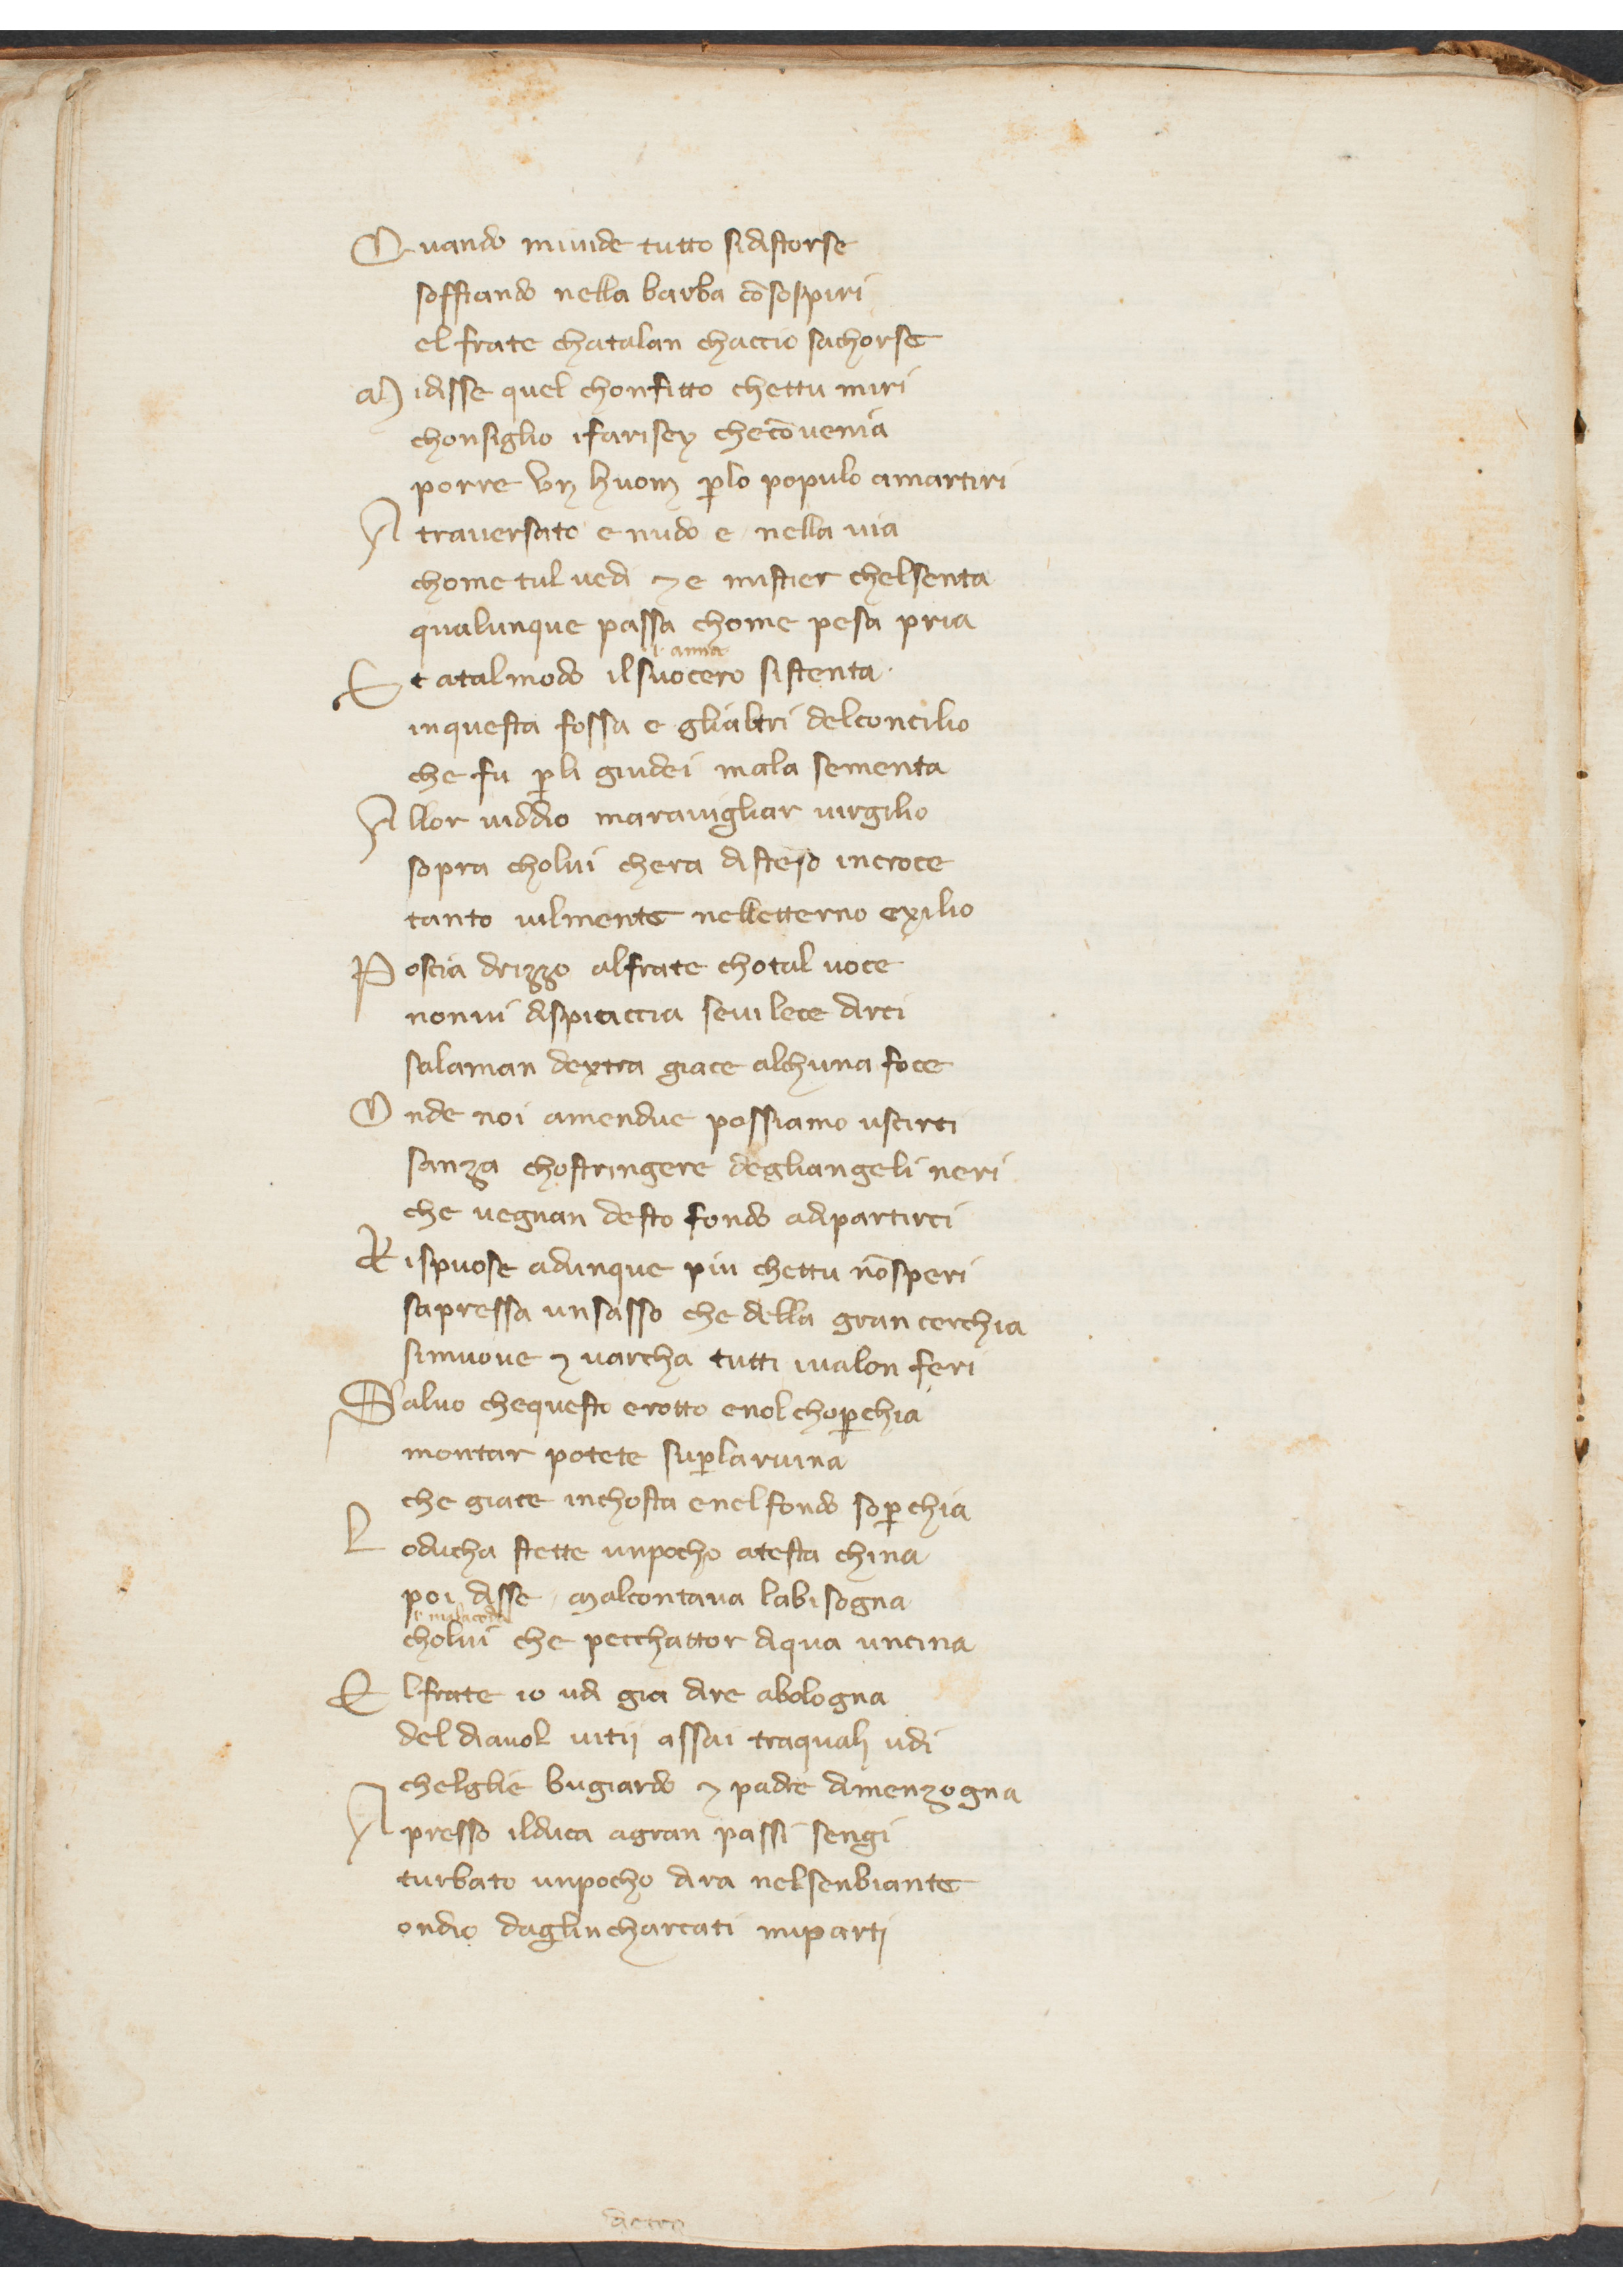 Quando mivide tutto sidistorse
soffiando nella barba cō sospiri
el frate chatalan chaccio sachorse
Midisse quel chonfitto chettu miri
chonsiglio ifarisey che cōvenia
porre vn huom ꝑlo populo amartiri
Atraversato e nudo e nella via
chome tul vedi ⁊ e mistier chelsenta
qualunque passa chome pesa pria
i· anna
Et atalmodo ilsuocero sistenta·
inquesta fossa e glialtri delconcilio
che fu ꝑli giudei mala sementa
Allor viddio maravigliar virgilio
sopra cholui chera disteso incroce
tanto vilmente nelletterno exilio
Poscia drizzo alfrate chotal voce
nonvi dispiaccia sevi lece dirci
salaman dextra giace alchuna foce
Onde noi amendue possiamo uscirci
sanza chostringere degliangeli neri
che vegnan desto fondo adipartirci
Rispuose adunque piu chettu nōsperi
sapressa unsasso che della gran cerchia
simuove ⁊ varcha tutti ivalon feri
Salvo chequesto erotto enol choꝑchia
montar potete suꝑlaruina
che giace inchosta enelfondo soꝑchia
Loducha stette unpocho atesta china
poi disse malcontava labisogna
i· malacoda
cholui che pecchattor diqua uncina
Elfrate io udi gia dire abologna
del diavol vitij assai traquali udi
chelglie bugiardo ⁊ padre dimenzogna
Apresso ilduca agran passi sengi
turbato unpocho dira nelsenbiante
ondio daglincharcati miparti
dietro